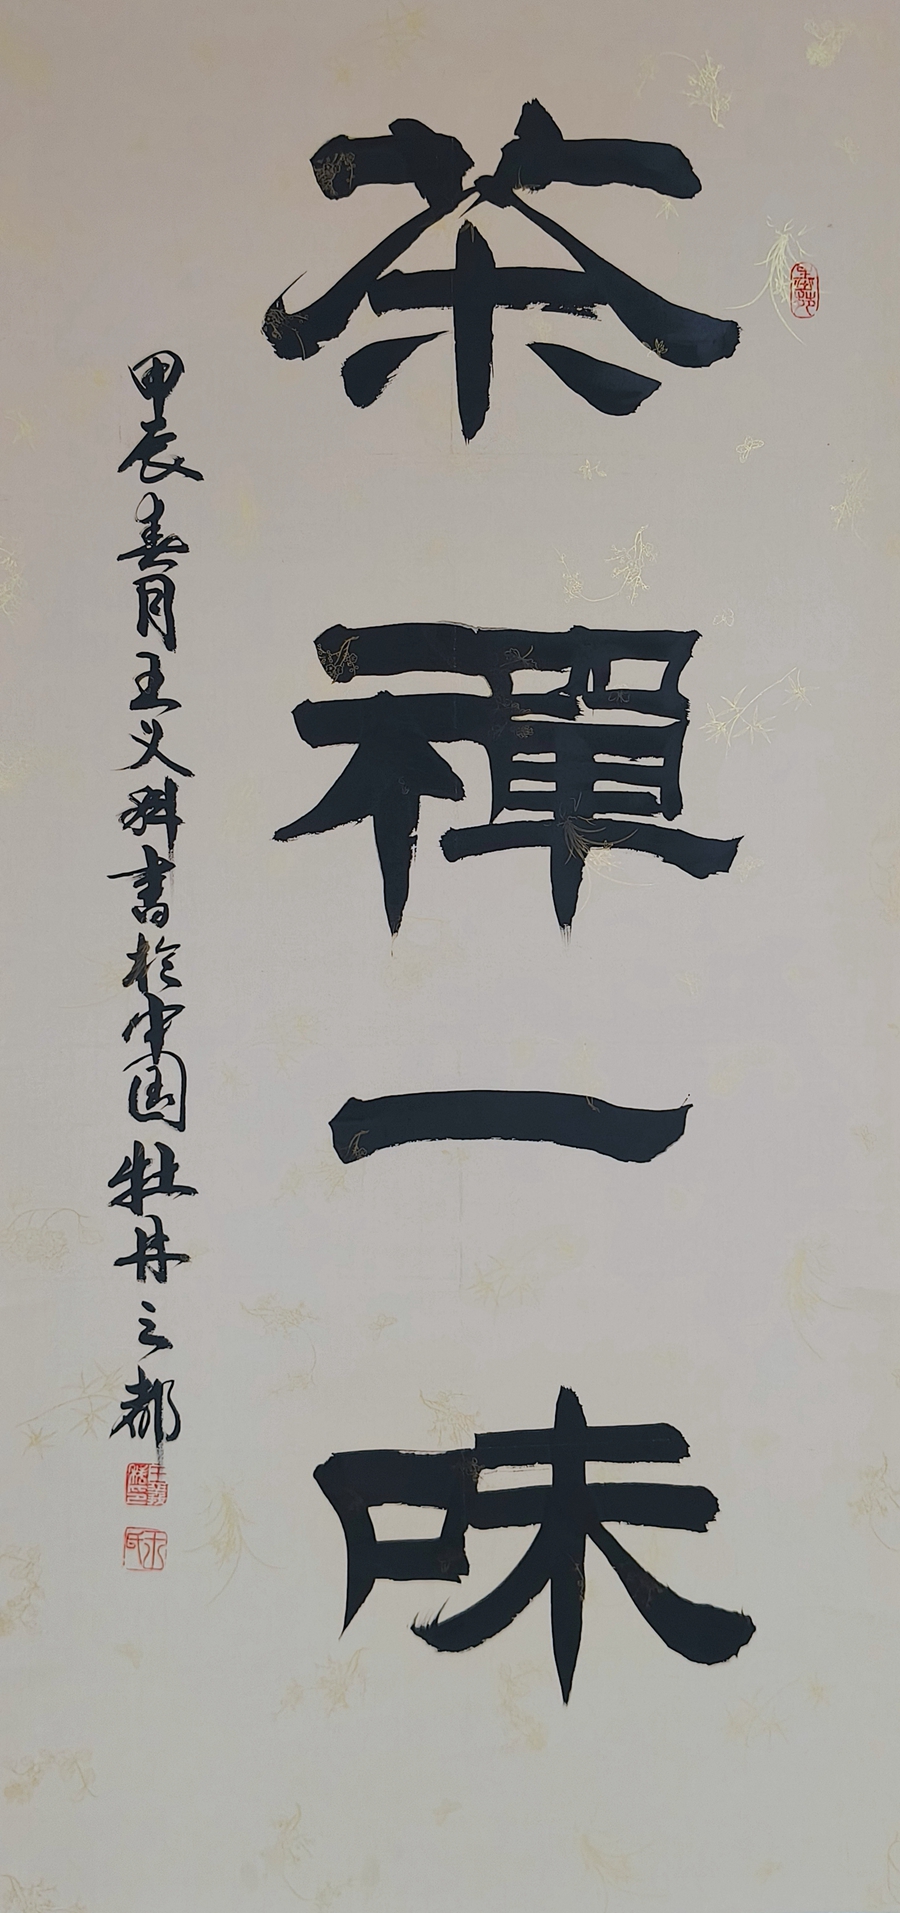 茶禪一味
甲辰春月王义科書於中国牡丹之都